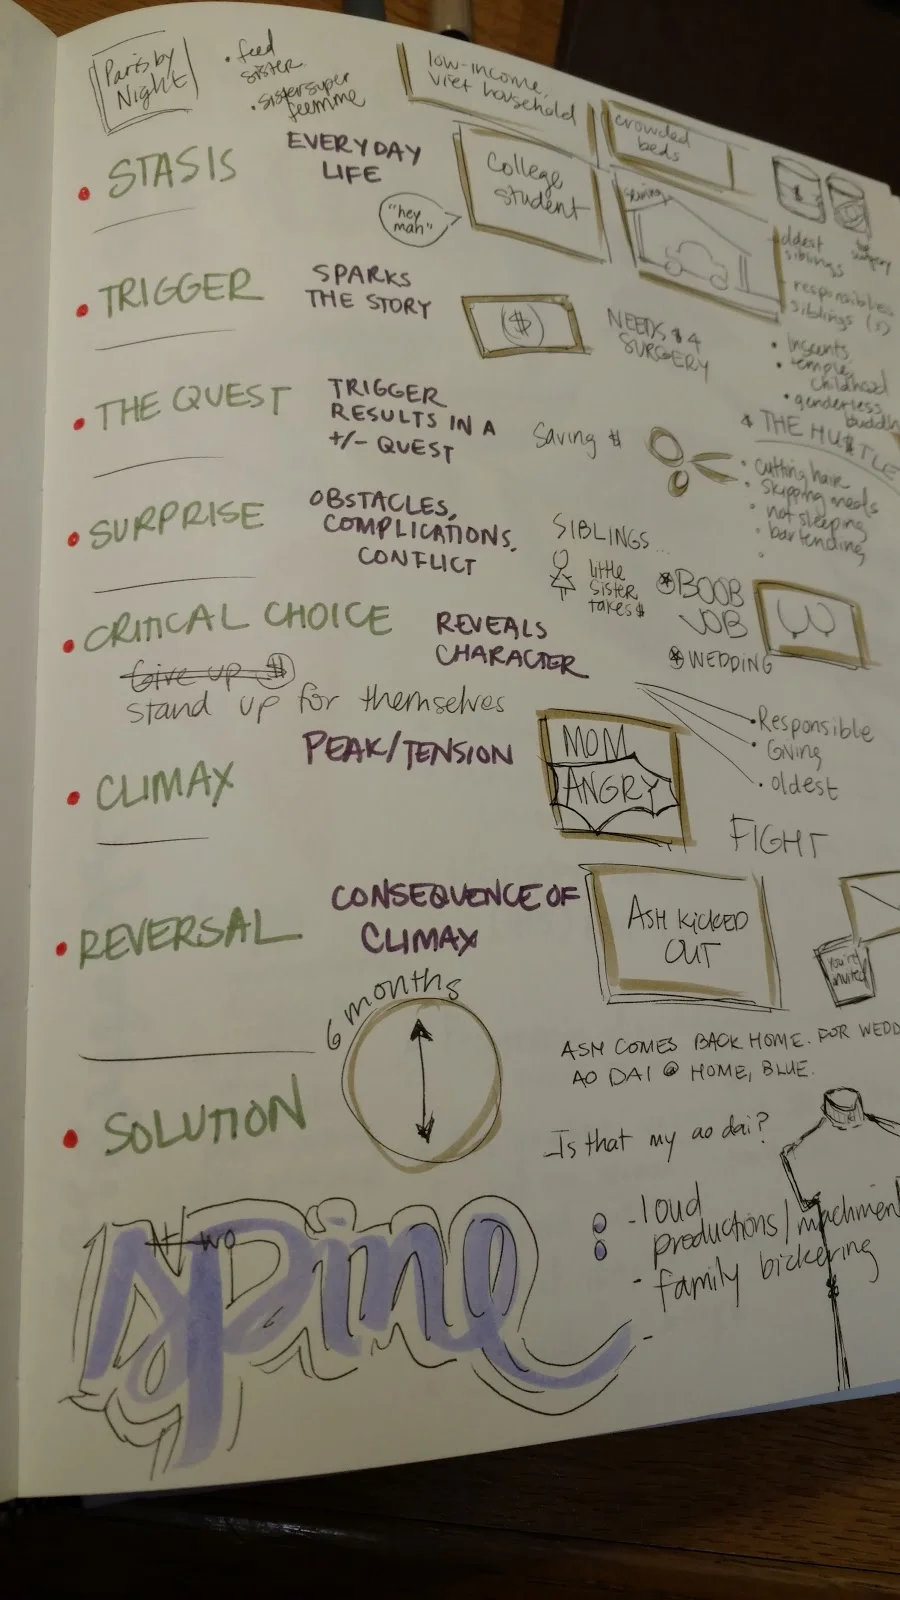 Paris by
Night
• feed
sister
• sister super
femme
low-income,
viet household
crowded
beds
• STASIS
EVERYDAY
LIFE
"hey
mah"
College
student
oldest
siblings
surgery
responsible
siblings (s)
• TRIGGER
SPARKS
THE STORY
$
NEEDS $ 4
SURGERY
• incents
• temple,
childhood
• genderless
buddh
• THE QUEST
TRIGGER
RESULTS IN A
+/- QUEST
Saving $
THE HU$TLE
• cutting hair
• skipping meals
• not sleeping
• bartending
• SURPRISE
OBSTACLES,
COMPLICATIONS,
CONFLICT
SIBLINGS...
little
sister
takes $
BOOB
JOB
WEDDING
• CRITICAL CHOICE
Give up $
stand up for themselves
REVEALS
CHARACTER
• Responsible
• Giving
• oldest
• CLIMAX
PEAK/TENSION
MOM
ANGRY
FIGHT
• REVERSAL
CONSEQUENCE OF
CLIMAX
ASH KICKED
OUT
you're
invited
6 months
ASH COMES BACK HOME. FOR WEDD
AO DAI @ HOME, BLUE.
• SOLUTION
Is that my ao dai?
Spine
- loud
productions/machment
- family bickering